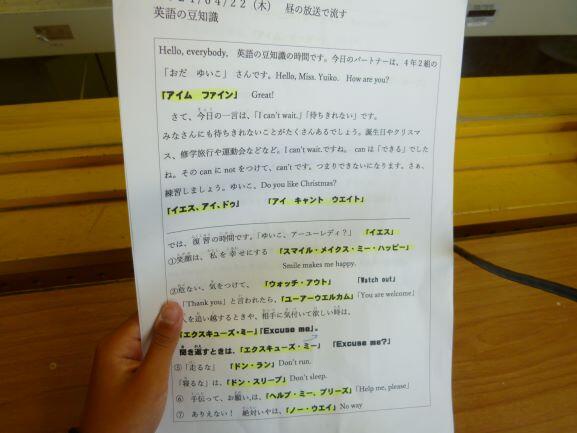 21/04/22（木） 昼の放送で流す
英語の豆知識
Hello, everybody, 英語の豆知識の時間です。今日のパートナーは、４年２組の
「おだ ゆいこ」 さんです。Hello, Miss. Yuiko. How are you?
「アイム ファイン」 Great!
さて、今日の一言は、「I can't wait.」「待ちきれない」です。
みなさんにも待ちきれないことがたくさんあるでしょう。誕生日やクリスマ
ス、修学旅行や運動会などなど。I can't wait.ですね。 can は「できる」でした
ね。その can に not をつけて、can't です。つまりできないになります。さぁ、
練習しましょう。ゆいこ、Do you like Christmas?
「イエス、アイ、ドゥ」 「アイ キャント ウエイト」
では、復習の時間です。「ゆいこ、アーユーレディ？」 「イエス」
①笑顔は、私を幸せにする 「スマイル・メイクス・ミー・ハッピー」
Smile makes me happy.
②危ない、気をつけて、 「ウォッチ・アウト」 「Watch out」
「Thank you」と言われたら、「ユーアーウエルカム」「You are welcome」
人を追い越するときや、相手に気付いて欲しい時は、
「エクスキューズ・ミー」「Excuse me」。
聞き返すときは、「エクスキューズ・ミー」 「Excuse me?」
⑤「走るな」 「ドン・ラン」 Don't run.
「寝るな」は、「ドン・スリープ」 Don't sleep.
⑥ 手伝って、お願い、は、「ヘルプ・ミー、プリーズ」「Help me, please」
⑦ ありえない！ 絶対いやは、「ノー・ウエイ」 No way